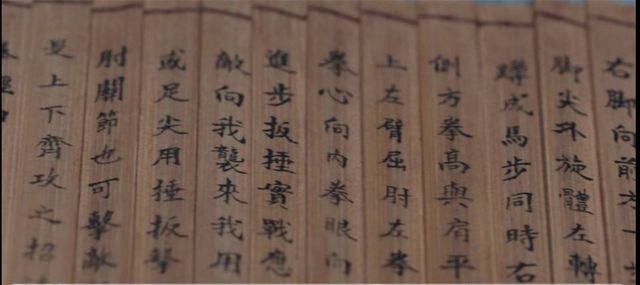 右脚向前方一
脚尖环旋體左轉
蹲成馬步同時右
侧方拳高與肩平
上左臂屈肘左拳
拳心向内拳眼向
進步扳捶實戰應
敵向我襲來我用
或足尖用捶扳擊
肘關節也可擊敵
是上下齊攻之招